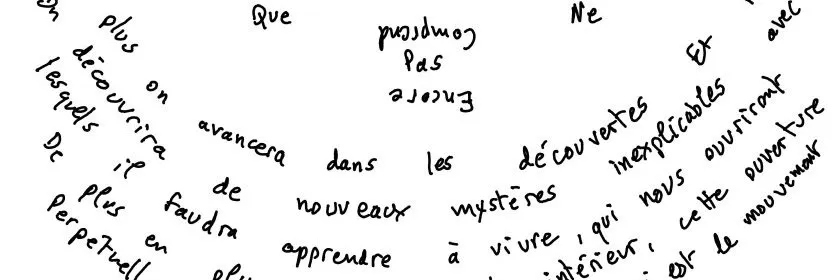 Que Ne
Comprend
Pas
Encore
plus on avancera dans les découvertes Et avec
découvrira de nouveaux mystères inexplicables
lesquels il faudra apprendre à vivre, qui nous ouvriront
De plus en plu intérieur, cette ouverture
Perpetuell est le mouvement